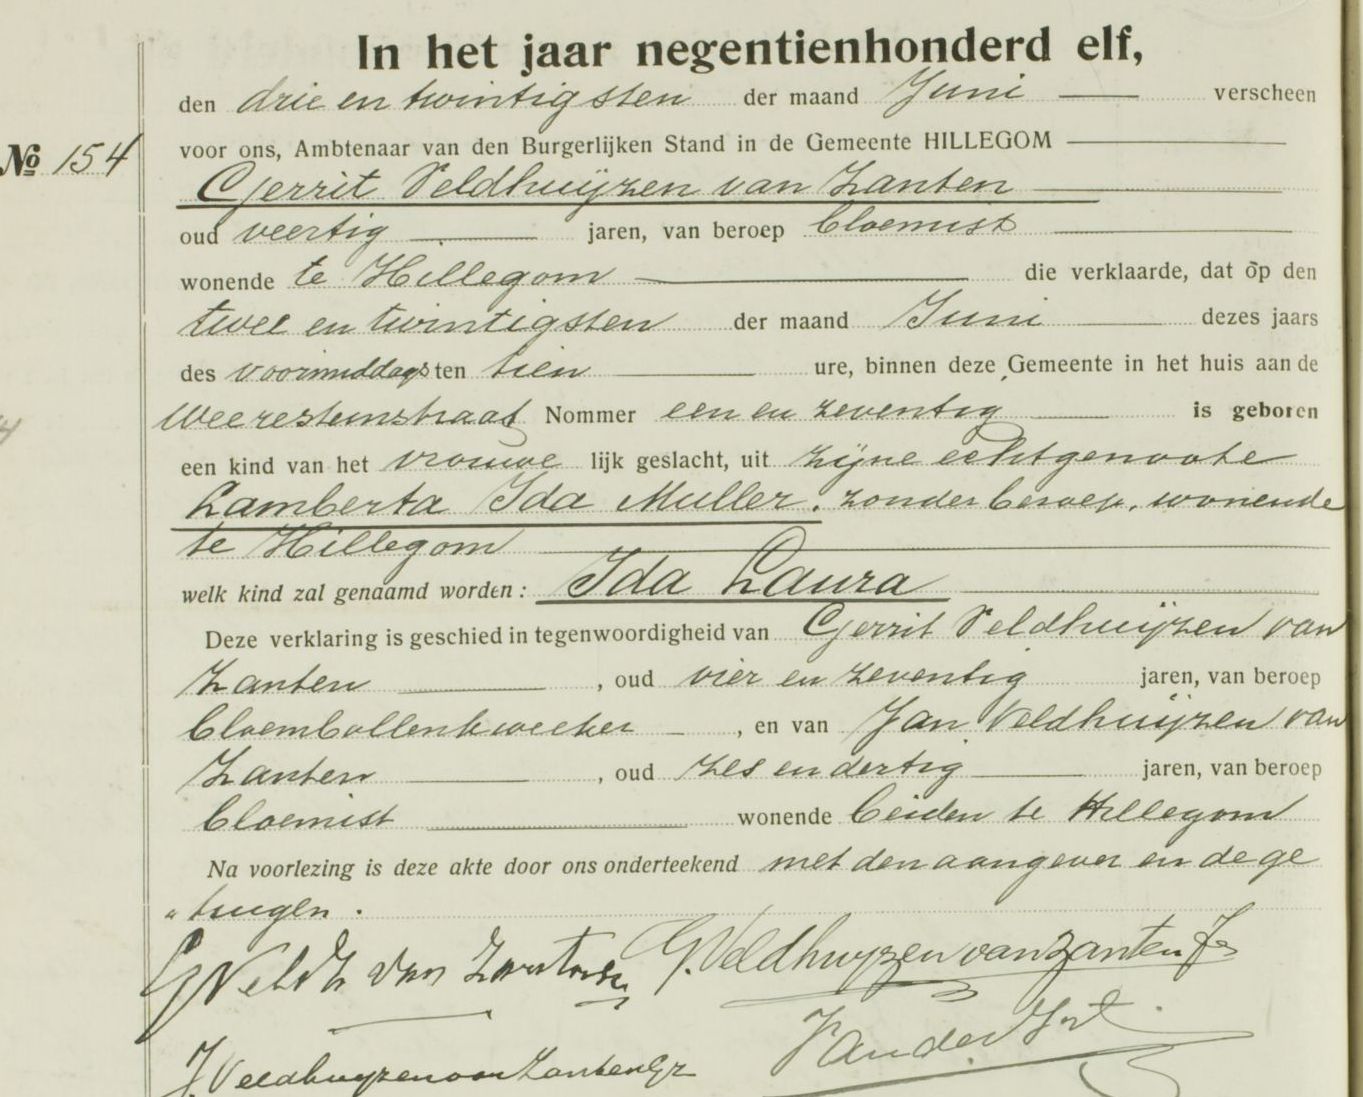 In het jaar negentienhonderd elf,
den drie en twintigsten der maand Juni verscheen
voor ons, Ambtenaar van den Burgerlijken Stand in de Gemeente HILLEGOM
No 154
Gerrit Veldhuijzen van Zanten
oud veertig jaren, van beroep bloemist
wonende te Hillegom die verklaarde, dat op den
twee en twintigsten der maand Juni dezes jaars
des voormiddags ten tien ure, binnen deze Gemeente in het huis aan de
Weeresteinstraat Nommer een en zeventig is geboren
een kind van het vrouwe lijk geslacht, uit zijne echtgenoote
Lamberta Ida Muller, zonder beroep, wonende
te Hillegom
welk kind zal genaamd worden: Ida Laura
Deze verklaring is geschied in tegenwoordigheid van Gerrit Veldhuijzen van
Zanten, oud vier en zeventig jaren, van beroep
bloembollenkweeker, en van Jan Veldhuijzen van
Zanten, oud zes en dertig jaren, van beroep
bloemist wonende beiden te Hillegom
Na voorlezing is deze akte door ons onderteekend met den aangever en de ge
„tuigen.
G Veldh van Zanten G. Veldhuyzen van Zanten Jr
J Veldhuyzen van Zanten Gz